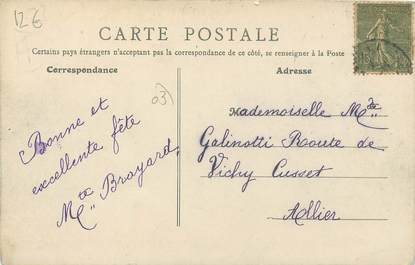 12€
CARTE POSTALE
Certains pays étrangers n'acceptant pas la correspondance de ce côté, se renseigner à la Poste
Correspondance
Adresse
03)
Bonne et
excellente fête
Mte Brayard.
Mademoiselle Mte
Galinotti Route de
Vichy Cusset
Allier